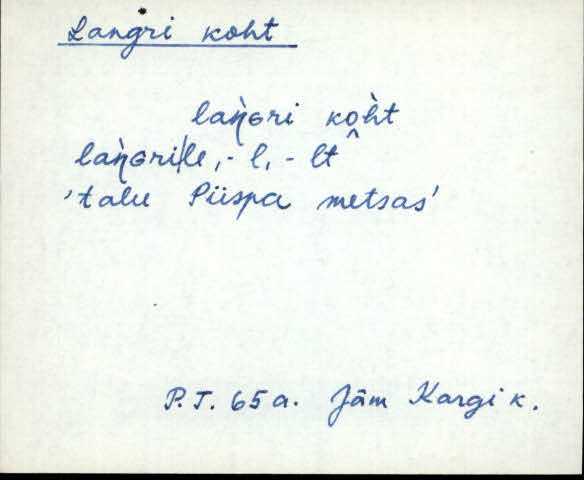 Langri koht
laǹɢri ko͔h̀t
laǹɢri|le, - l, - lt
'talu Piispa metsas'
P.T. 65 a. Jäm Kargi k.